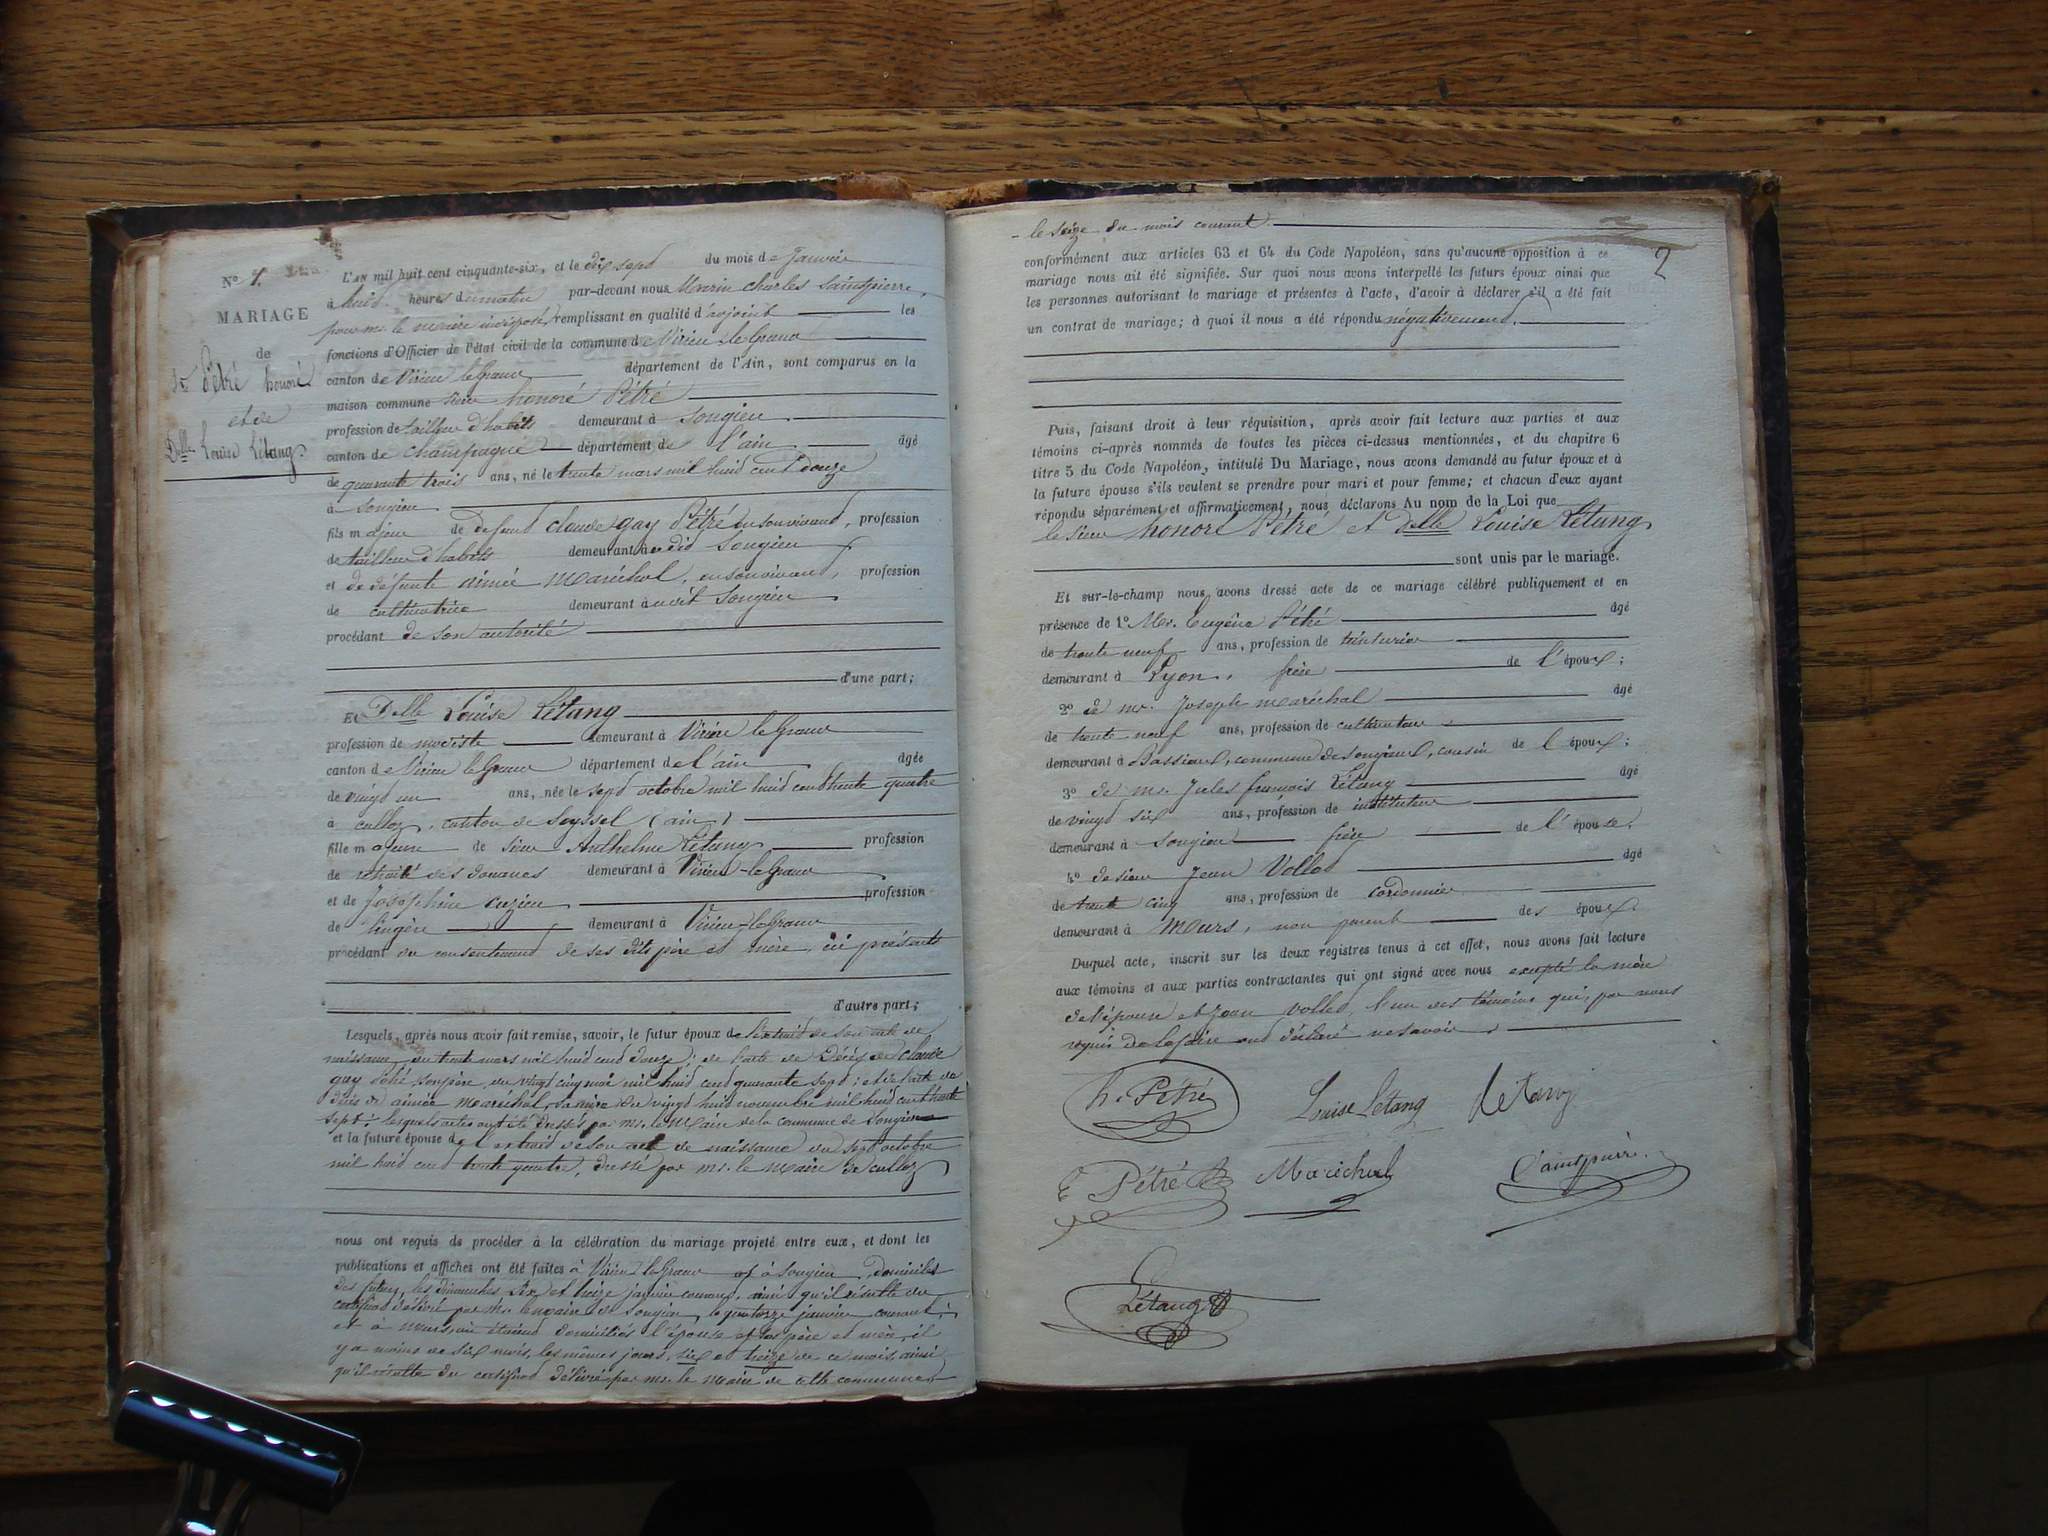 N° 1.
MARIAGE
de
Sr Pétré honoré
et de
Delle Louise Létang
L'AN mil huit cent cinquante-six, et le dix sept du mois de Janvier
à huit heures du matin par-devant nous Marin Charles Saintpierre,
pour mr. le maire remplissant en qualité d'adjoint les
fonctions d'Officier de l'état civil de la commune de Virieu le Grand
canton de Virieu le Grand département de l'Ain, sont comparus en la
maison commune sieur honoré Pétré
profession de tailleur d'habits demeurant à Songieu
canton de Champagne département de l'ain âgé
de quarante trois ans, né le trente mars mil huit cent douze
à Songieu
fils majeur de défunt claude gay Pétré en son vivant, profession
de tailleur d'habits demeurant audit Songieu
et de défunte aimée Maréchal, en son vivant, profession
de cultivatrice demeurant audit Songieu
procédant de son autorité
d'une part;
Et Delle Louise Létang
profession de modiste demeurant à Virieu le Grand
canton de Virieu le Grand département de l'ain âgée
de vingt un ans, née le sept octobre mil huit cent trente quatre
à culloz, canton de Seyssel (ain)
fille majeure de sieur Anthelme Létang profession
de retraité des douanes demeurant à Virieu-le Grand
et de Joséphine cuzieu profession
de lingère demeurant à Virieu-le Grand
procédant du consentement de ses dits père et mère, ici présents
d'autre part;
Lesquels, après nous avoir fait remise, savoir, le futur époux de l'extrait de son acte de
naissance, du trente mars mil huit cent douze; de l'acte de Décès de claude
gay Pétré son père, du vingt cinq mai mil huit cent quarante sept; et de l'acte de
décès de aimée Maréchal, sa mère du vingt huit novembre mil huit cent trente
sept; lesquels actes ont été dressés par mr. le Maire de la commune de Songieu
et la future épouse de l'extrait de son acte de naissance du sept octobre
mil huit cent trente quatre, dressé par mr. le maire de culloz
nous ont requis de procéder à la célébration du mariage projeté entre eux, et dont les
publications et affiches ont été faites à Virieu le Grand et à Songieu, domiciles
des futurs, les dimanches six et treize janvier courant, ainsi qu'il résulte du
certificat délivré par mr. le maire de Songieu, le quatorze janvier courant;
et à Meurs, où étaient domiciliés l'épouse et ses père et mère, il
y a moins de six mois, les mêmes jours, six et treize de ce mois, ainsi
qu'il résulte du certificat délivré par mr. le maire de cette commune,
2
le seize du mois courant.
conformément aux articles 63 et 64 du Code Napoléon, sans qu'aucune opposition à ce
mariage nous ait été signifiée. Sur quoi nous avons interpellé les futurs époux ainsi que
les personnes autorisant le mariage et présentes à l'acte, d'avoir à déclarer s'il a été fait
un contrat de mariage; à quoi il nous a été répondu négativement.
Puis, faisant droit à leur réquisition, après avoir fait lecture aux parties et aux
témoins ci-après nommés de toutes les pièces ci-dessus mentionnées, et du chapitre 6
titre 5 du Code Napoléon, intitulé Du Mariage, nous avons demandé au futur époux et à
la future épouse s'ils veulent se prendre pour mari et pour femme; et chacun d'eux ayant
répondu séparément et affirmativement, nous déclarons Au nom de la Loi que
le sieur honoré Pétré et Delle Louise Létang
sont unis par le mariage.
Et sur-le-champ nous avons dressé acte de ce mariage célébré publiquement et en
présence de 1° Mr. Eugène Pétré âgé
de trente neuf ans, profession de teinturier
demeurant à Lyon, frère de l'époux;
2° de mr. Joseph maréchal âgé
de trente neuf ans, profession de cultivateur
demeurant à Bassieu, commune de Songieu, cousin de l'époux;
3° de mr. Jules françois Létang âgé
de vingt six ans, profession de instituteur
demeurant à Songieu frère de l'épouse,
4° de sieur Jean Vollod âgé
de trente cinq ans, profession de cordonnier
demeurant à Meurs, non parent des époux.
Duquel acte, inscrit sur les deux registres tenus à cet effet, nous avons fait lecture
aux témoins et aux parties contractantes qui ont signé avec nous excepté la mère
de l'épouse et Jean Vollod, l'un des témoins qui, par nous
requis de le faire ont déclaré ne savoir.
h. Pétré
Louise Létang
Letang
E Pétré
Maréchal
Saintpierre
Létang